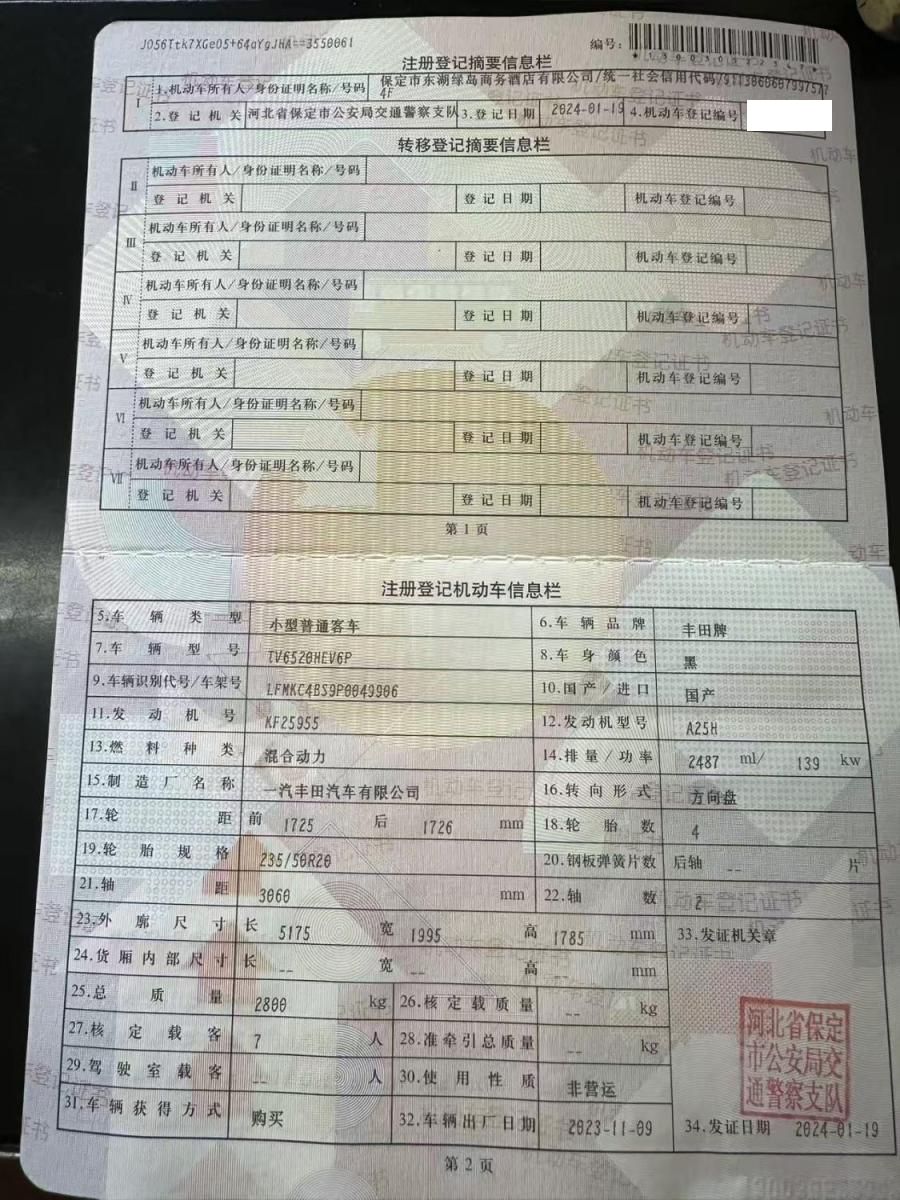 J056Ttk7XGeO5+64aYgJHA==3550061
编号:
注册登记摘要信息栏
I 1.机动车所有人/身份证明名称/号码 保定市东湖绿岛商务酒店有限公司/统一社会信用代码/911306060799757
4F
2.登记机关 河北省保定市公安局交通警察支队 3.登记日期 2024-01-19 4.机动车登记编号
转移登记摘要信息栏
II 机动车所有人/身份证明名称/号码
登记机关 登记日期 机动车登记编号
III 机动车所有人/身份证明名称/号码
登记机关 登记日期 机动车登记编号
IV 机动车所有人/身份证明名称/号码
登记机关 登记日期 机动车登记编号
V 机动车所有人/身份证明名称/号码
登记机关 登记日期 机动车登记编号
VI 机动车所有人/身份证明名称/号码
登记机关 登记日期 机动车登记编号
VII 机动车所有人/身份证明名称/号码
登记机关 登记日期 机动车登记编号
第1页
注册登记机动车信息栏
5.车辆类型 小型普通客车 6.车辆品牌 丰田牌
7.车辆型号 TV6520HEV6P 8.车身颜色 黑
9.车辆识别代号/车架号 LFMKC4BS9P0049906 10.国产/进口 国产
11.发动机号 KF25955 12.发动机型号 A25H
13.燃料种类 混合动力 14.排量/功率 2487 ml/ 139 kw
15.制造厂名称 一汽丰田汽车有限公司 16.转向形式 方向盘
17.轮距 前 1725 后 1726 mm 18.轮胎数 4
19.轮胎规格 235/50R20 20.钢板弹簧片数 后轴 -- 片
21.轴距 3060 mm 22.轴数 2
23.外廓尺寸 长 5175 宽 1995 高 1785 mm 33.发证机关章
24.货厢内部尺寸 长 -- 宽 -- 高 -- mm
25.总质量 2800 kg 26.核定载质量 -- kg
27.核定载客 7 人 28.准牵引总质量 -- kg
29.驾驶室载客 -- 人 30.使用性质 非营运
河北省保定
市公安局交
通警察支队
31.车辆获得方式 购买 32.车辆出厂日期 2023-11-09 34.发证日期 2024-01-19
第2页